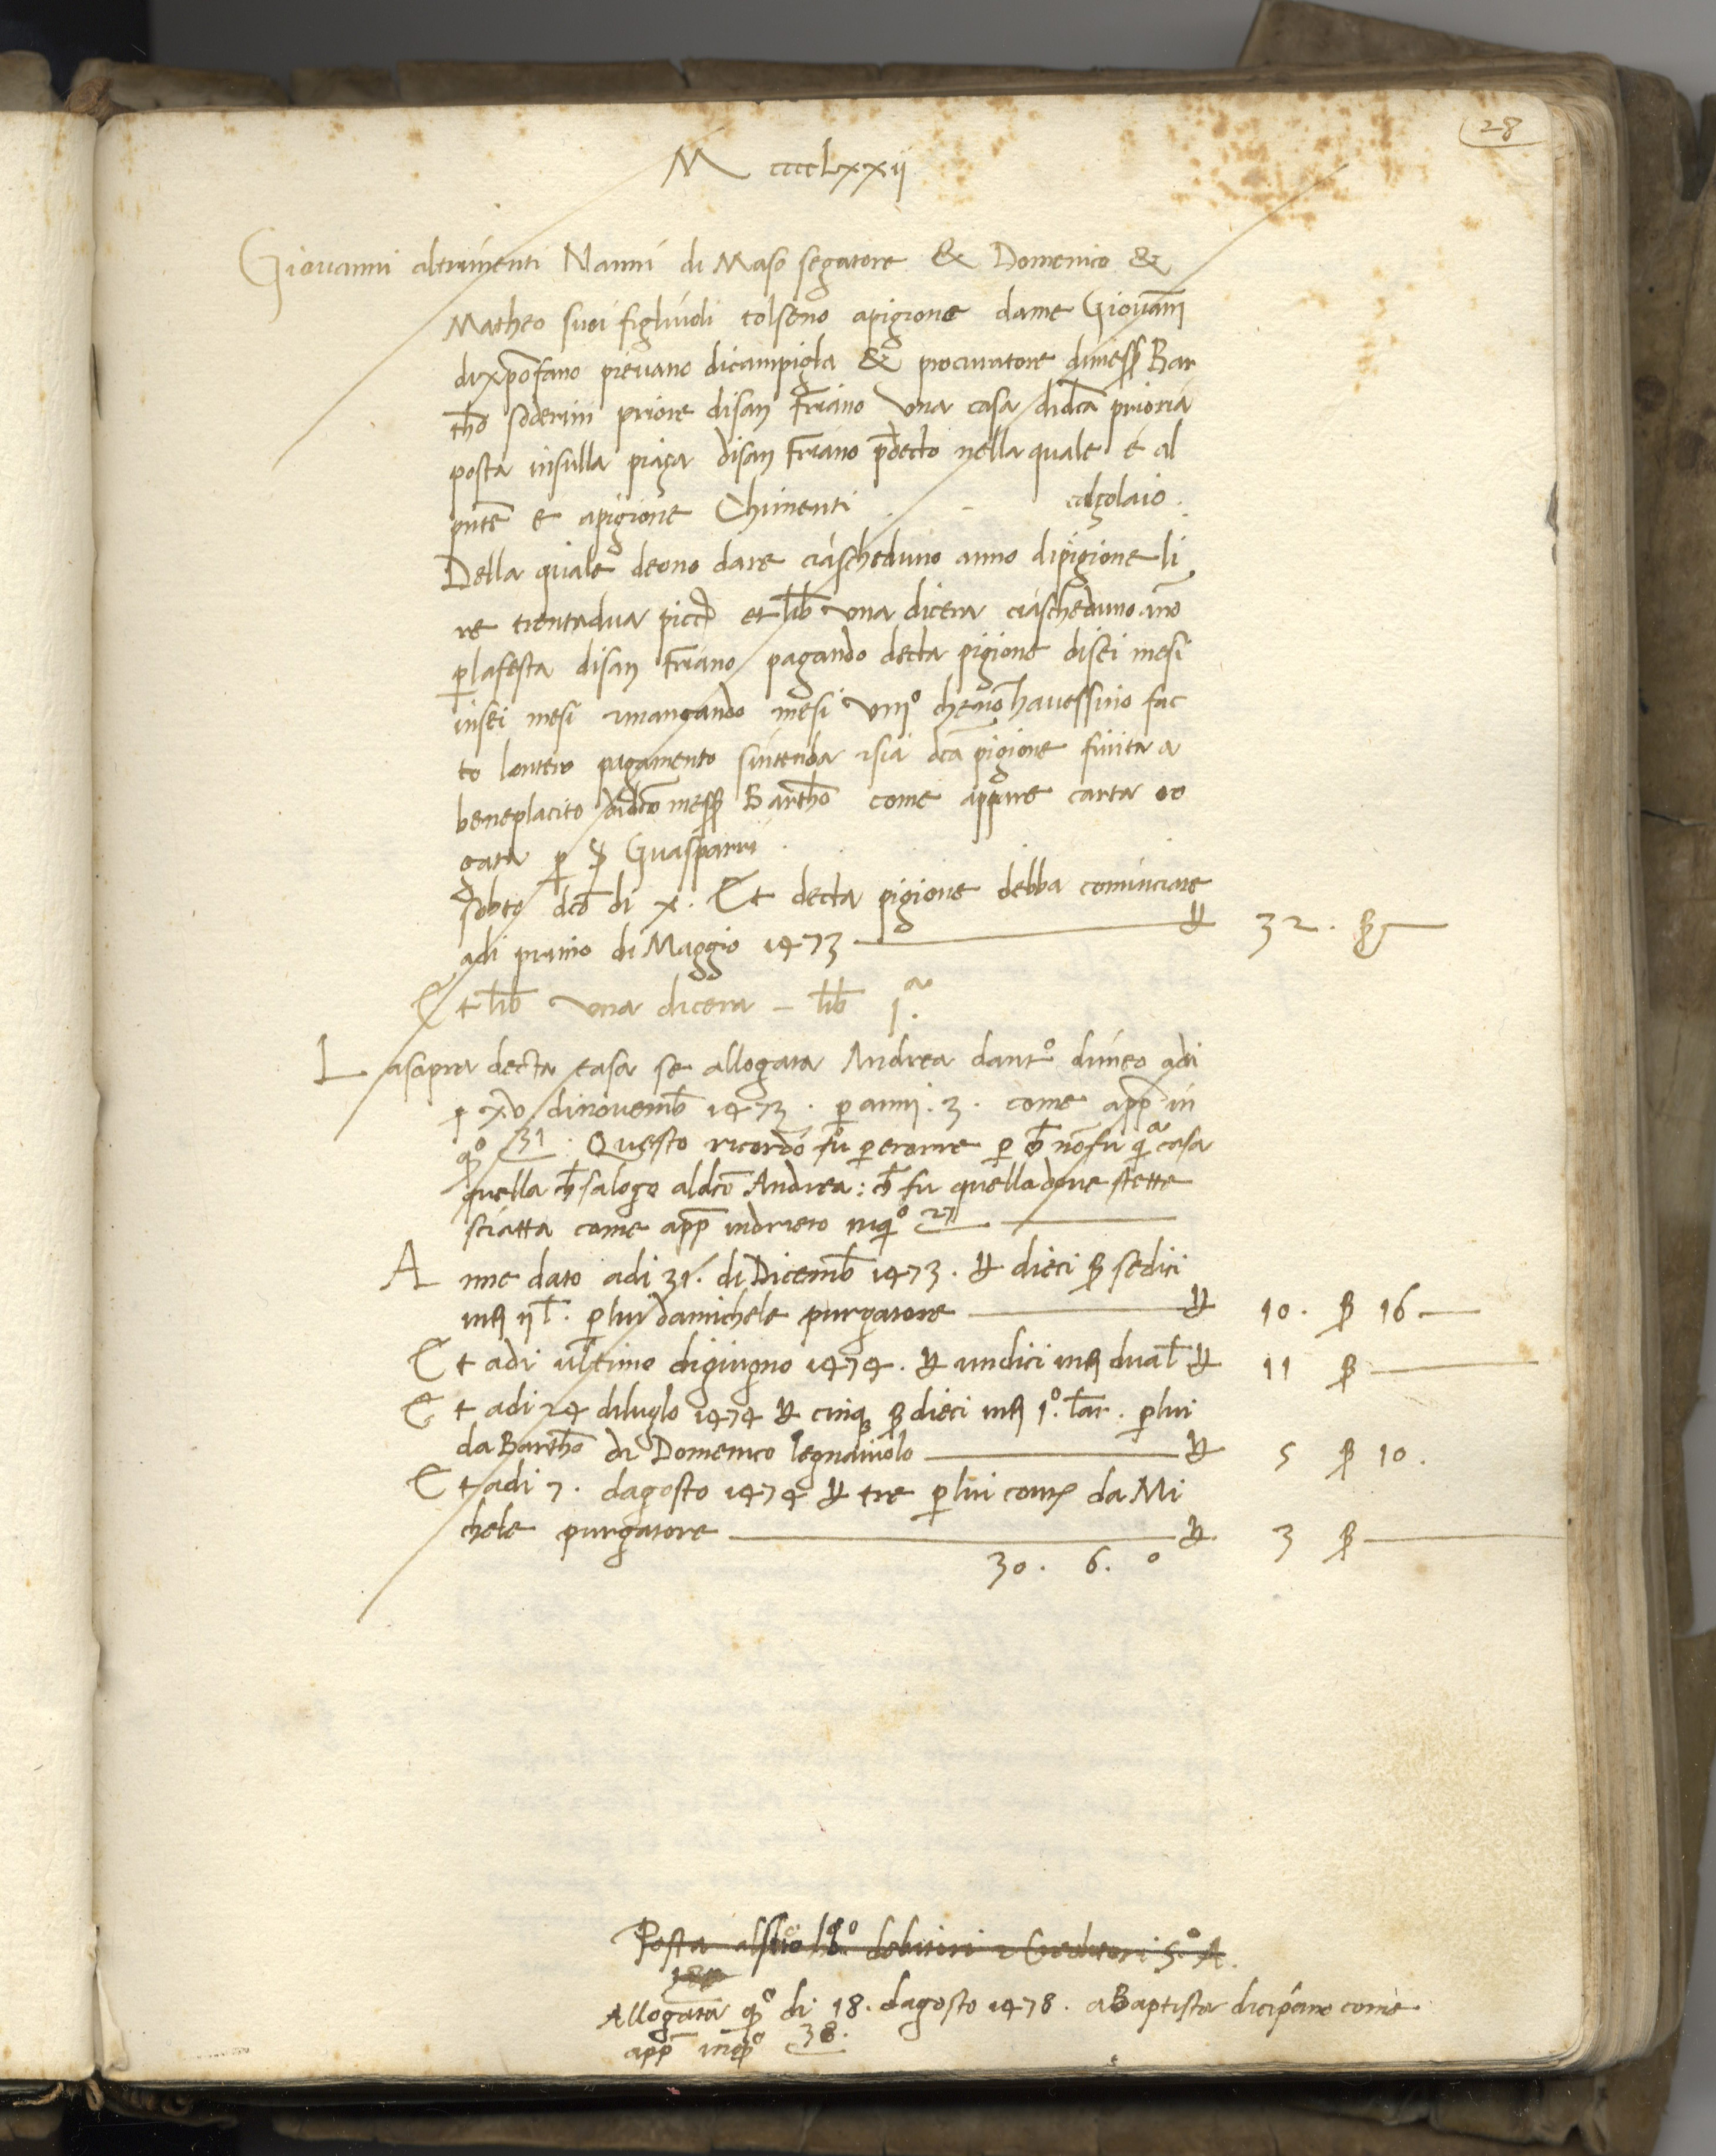 28
M ccccLxxij
Giovanni altrimenti Nanni di Maso segatore & Domenico &
Matheo suoi figluoli tolseno apigione dame Giovanni
dixpofano pievano dicampigla & procuratore dimess Bar
tho soderini priore disan Friano una casa didca prioria
posta insulla piaça disan Friano pdecto nella quale é al
pnte e apigione Chimenti calçolaio.
Della quale deono dare ciascheduno anno dipigione li
re trentadua picc et lib una dicera ciascheduno ano
p lafesta disan Friano pagando decta pigione disei mesi
insei mesi mangando mesi uno che havessino fac
to lontero pagamento sintenda sia dca pigione finita a
beneplacito didco mess Bartho come appare carta ro
gata p S Guasparri
sobto dco di x. Et decta pigione debba cominciare
adi primo di Maggio 1473 — 32. ß —
Et lib una dicera - lib 1ª.
La sopra decta casa se allogata Andrea danto dimeo adi
xv dinovemb 1473. p anni. 3. come app in
qo 31. Questo ricordo fu p errore p ch no fu qa casa
quella ch salogo aldco Andrea: ch fu quella dove stette
sciatta come app indrieto inqo 27
Anne dato adi 31. di Dicemb 1473. dieci ß sedici
p lui damichele purgatore — 10. ß 16 —
Et adi ultimo digiugno 1474. undici 11 ß —
Et adi 24 diluglo 1474 cinq ß dieci 1º. lar. p lui
da Bartho di Domenico legnaiuolo — 5 ß 10.
Et adi 7. dagosto 1474 tre p lui da Mi
chele purgatore — 3 ß —
30. 6. 0
Posta al libº debitori Creditori Sº A.
Allogata qº di 18. dagosto 1478. a Baptista dicipano come
app inqº 38.